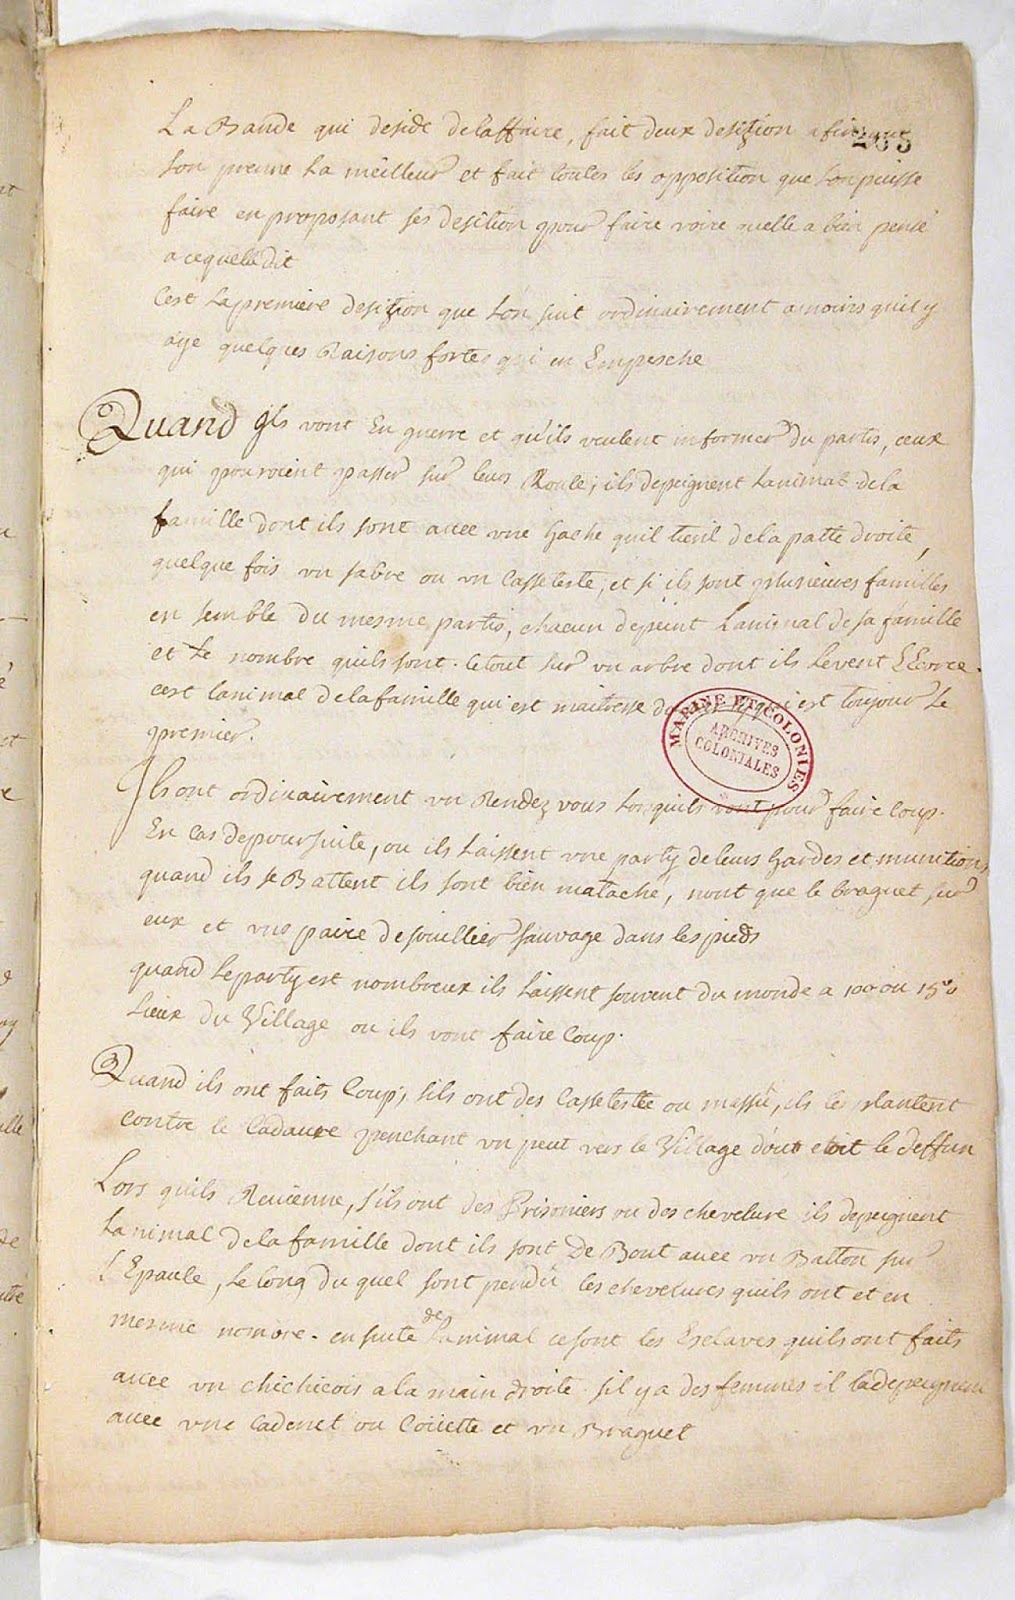 La Bande qui deside delaffaire, fait deux desizion afin que
205
lon prenne La meilleur et fait toutes les opposition que Lonpuisse
faire en proposant ses desition pour faire voire quelle a bien pensé
a cequelle dit
Cest Lapremiere desizion que Lon suit ordinairement amoins quil y
aye quelques Raisons fortes qui en Empesche
Quand Ils vont En guerre et qu'ils veulent informer du partis, ceux
qui pouroient passer sur leur Route, ils depeignent Lanimal dela
famille dont ils sont avec une hache quil tient dela patte droite,
quelque fois un sabre ou un Casseteste, et si ils sont plusieures familles
en semble du mesme partis, chacun depeint Lanimal de sa famille
et Le nombre quils sont. Le tout sur un arbre dont ils Levent LEcorce.
cest Lanimal delafamille qui est maitresse du qui est toujour Le
premier.
MARINE ET COLONIES
ARCHIVES
COLONIALES
Ils ont ordinairement un Rendez vous Lorsquils vont pour faire Coup.
En Cas depoursuite, ou ils Laissent une party deleurs hardes et munitions,
quand ils se Battent ils sont bien mataché, nont que le braguet sur
eux et une paire desouillier sauvage dans les pieds
quand Leparty est nombreux ils Laissent souvent du monde a 100 ou 150
Lieux du Village ou ils vont faire Coup.
Quand ils ont faits Coup, sils ont des Casseteste ou massue, ils les plantent
contre le Cadavre penchant un peut vers le Village dont etoit le deffun
Lors quils Revienne, s'ils ont des Prisoniers ou des chevelure ils depeignent
Lanimal delafamille dont ils sont De Bout avec un Batton sur
LEpaule, Le long du quel sont pendu les chevelures quils ont et en
mesme nombre. en suite de Lanimal cesont les Esclaves quils ont faits
avec un chichicois ala main droite. sil y a des femmes il ladepeignent
avec une Cadenet ou Coüette et un Braguet